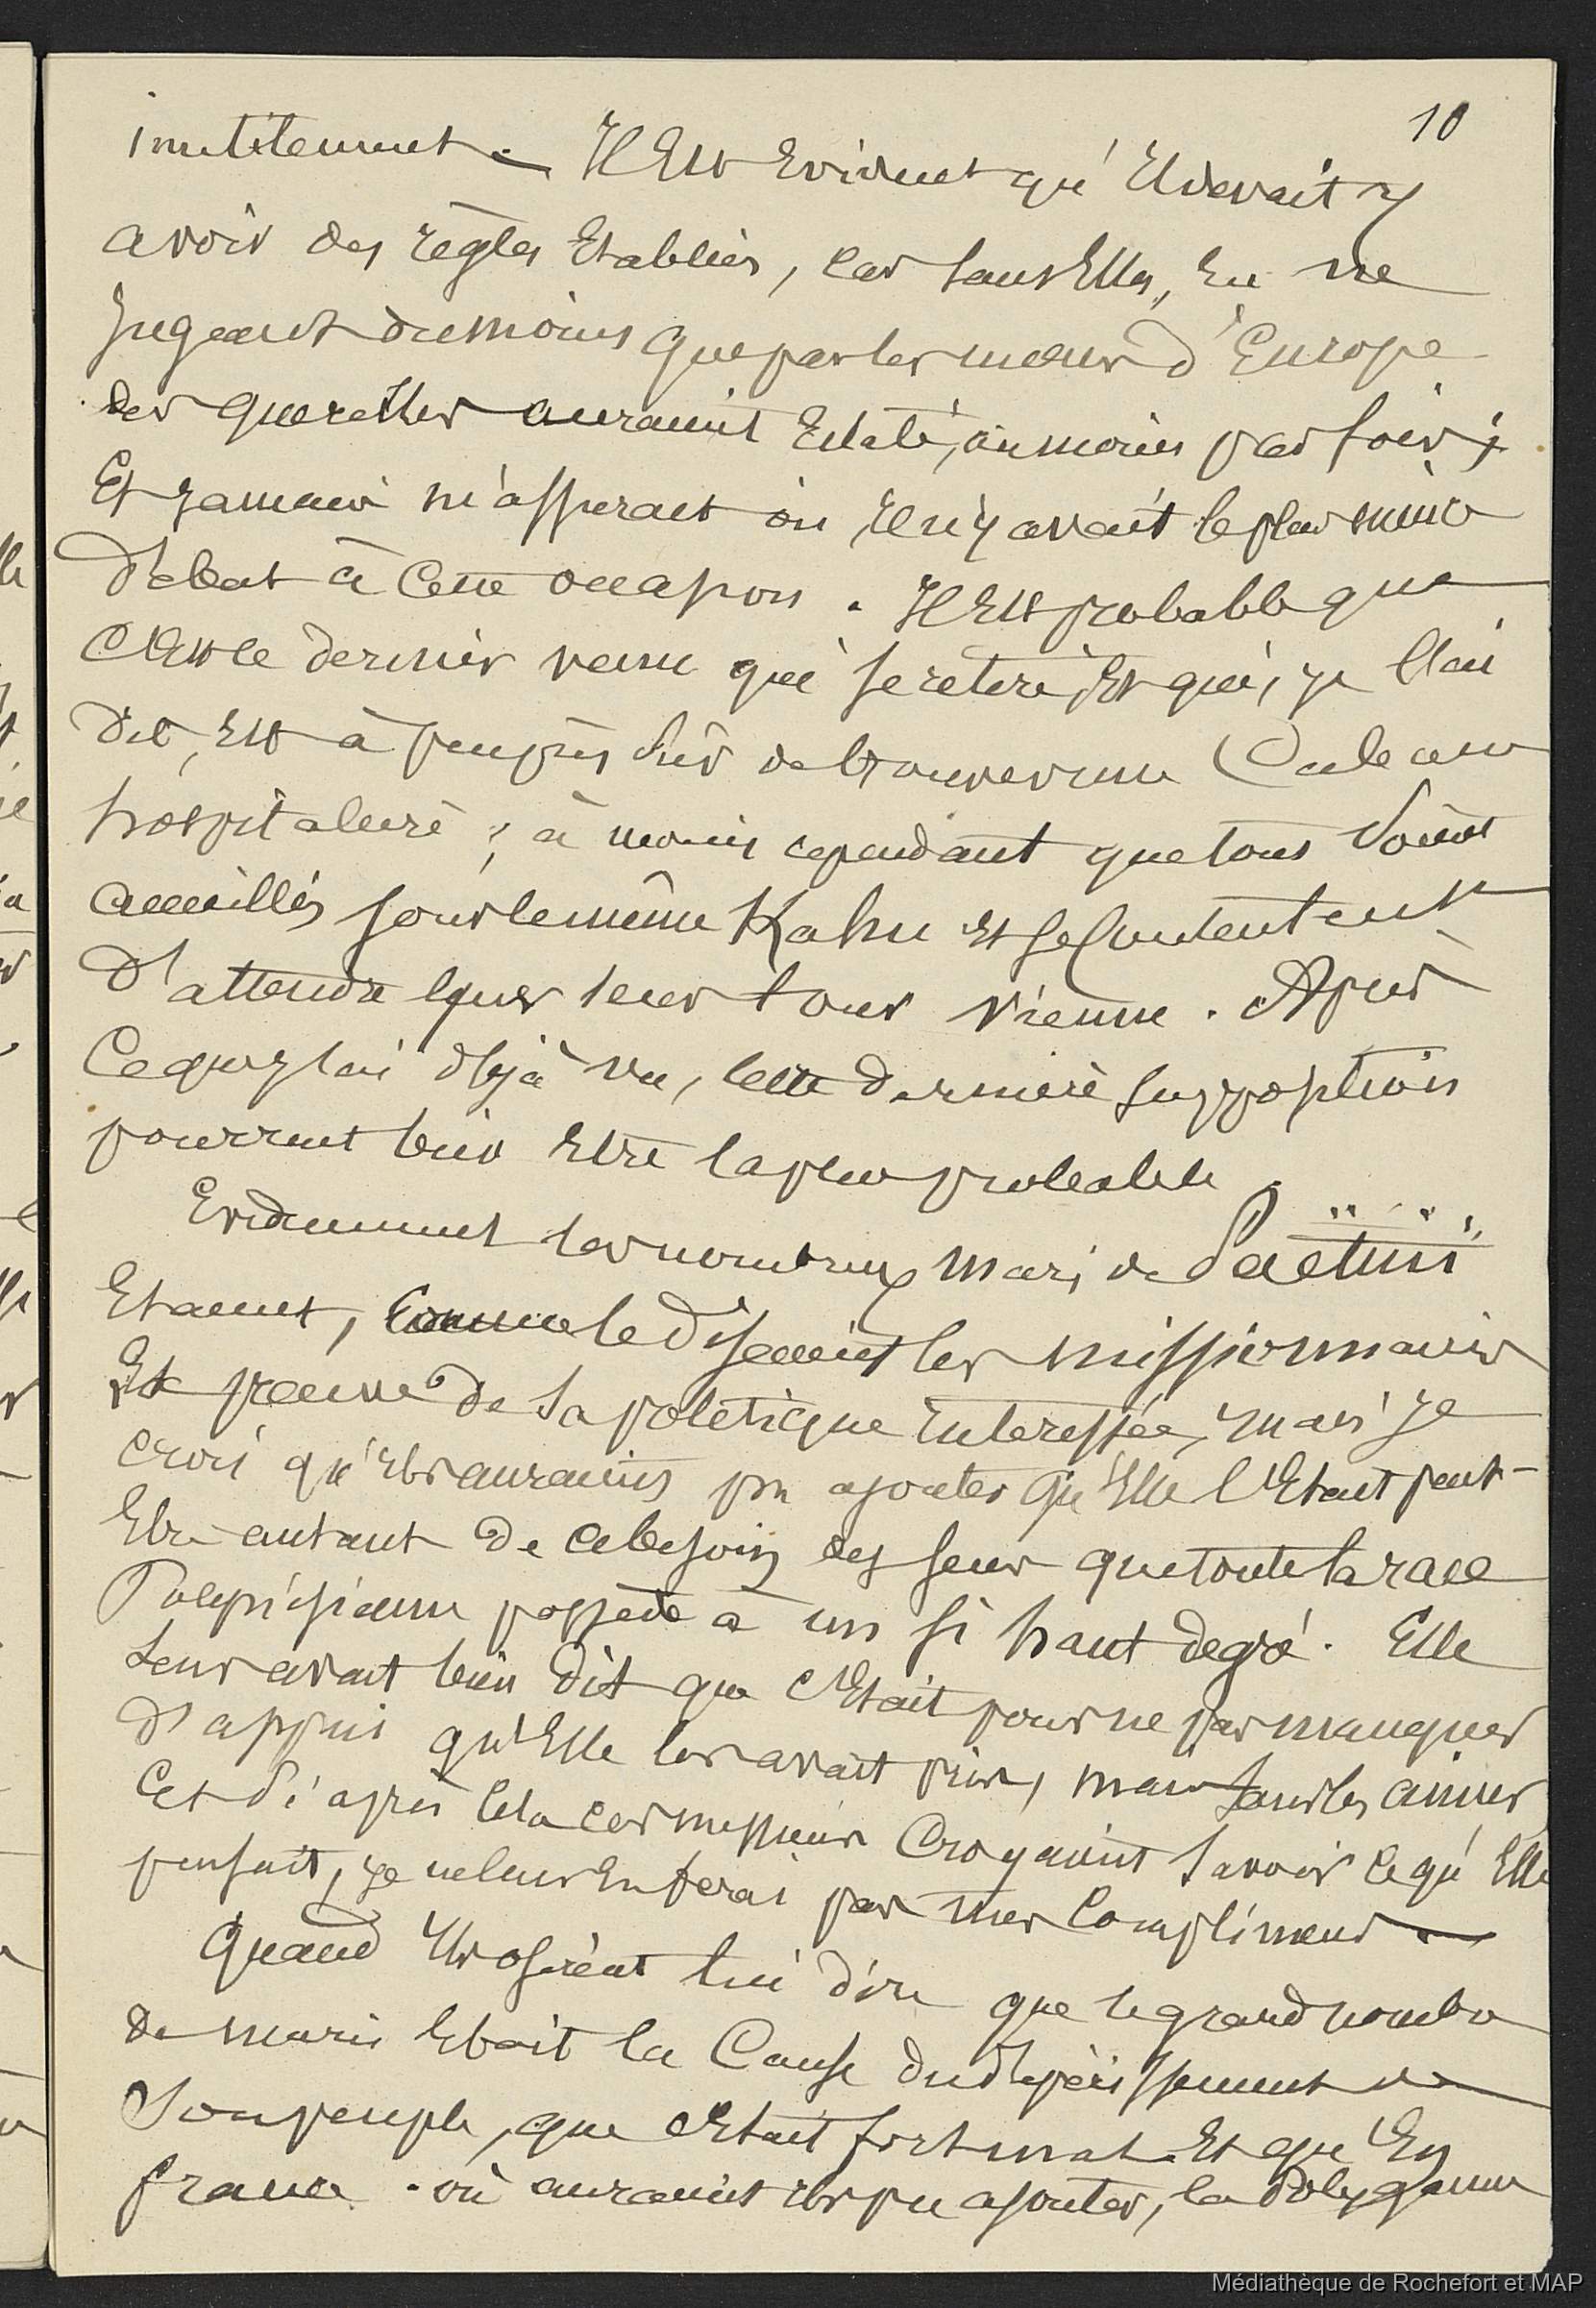 10
inutilement. Il est evident qu'il devait y
avoir des règles etablies, car sans elles, en ne
jugeant du moins que par les moeurs d'Europe
des querelles auraient eclaté, au moins parfois ;
et jamais m'assurait on il n'y avait le plus mince
débat à cette occasion. Il est probable que
c'est le dernier venu qui se retire, et qui, je l'ai
dit, est à peu près sûr de trouver une
hospitalière ; à moins cependant que tous soient
accueillis sous le même Kahu et se contentent
d'attendre que leur tour vienne. Après
ce que j'ai déjà vu, cette dernière supposition
pourrait bien être la plus probable.
Evidemment les nombreux maris de Paetini
etaient, comme le disaient les missionnaires
et preuve de sa politique interessée, mais je
crois qu'ils auraient pu ajouter qu'elle l'etait peut-
etre autant de ce besoin des sens que toute la race
Polynésienne possède à un si haut degré. Elle
leur avait bien dit que c'etait pour ne pas manquer
d'appui qu'elle les avait pris, mais sans les aimer
et si après cela ces messieurs croyaient savoir ce qu'elle
pensait, je ne leur en ferai pas mes compliments.
Quand ils osèrent lui dire que le grand nombre
de maris etait la cause du dépérissement de
son peuple, que c'etait fort mal et qu'en
france . où auraient ils pu ajouter, la Polygamie
Médiathèque de Rochefort et MAP